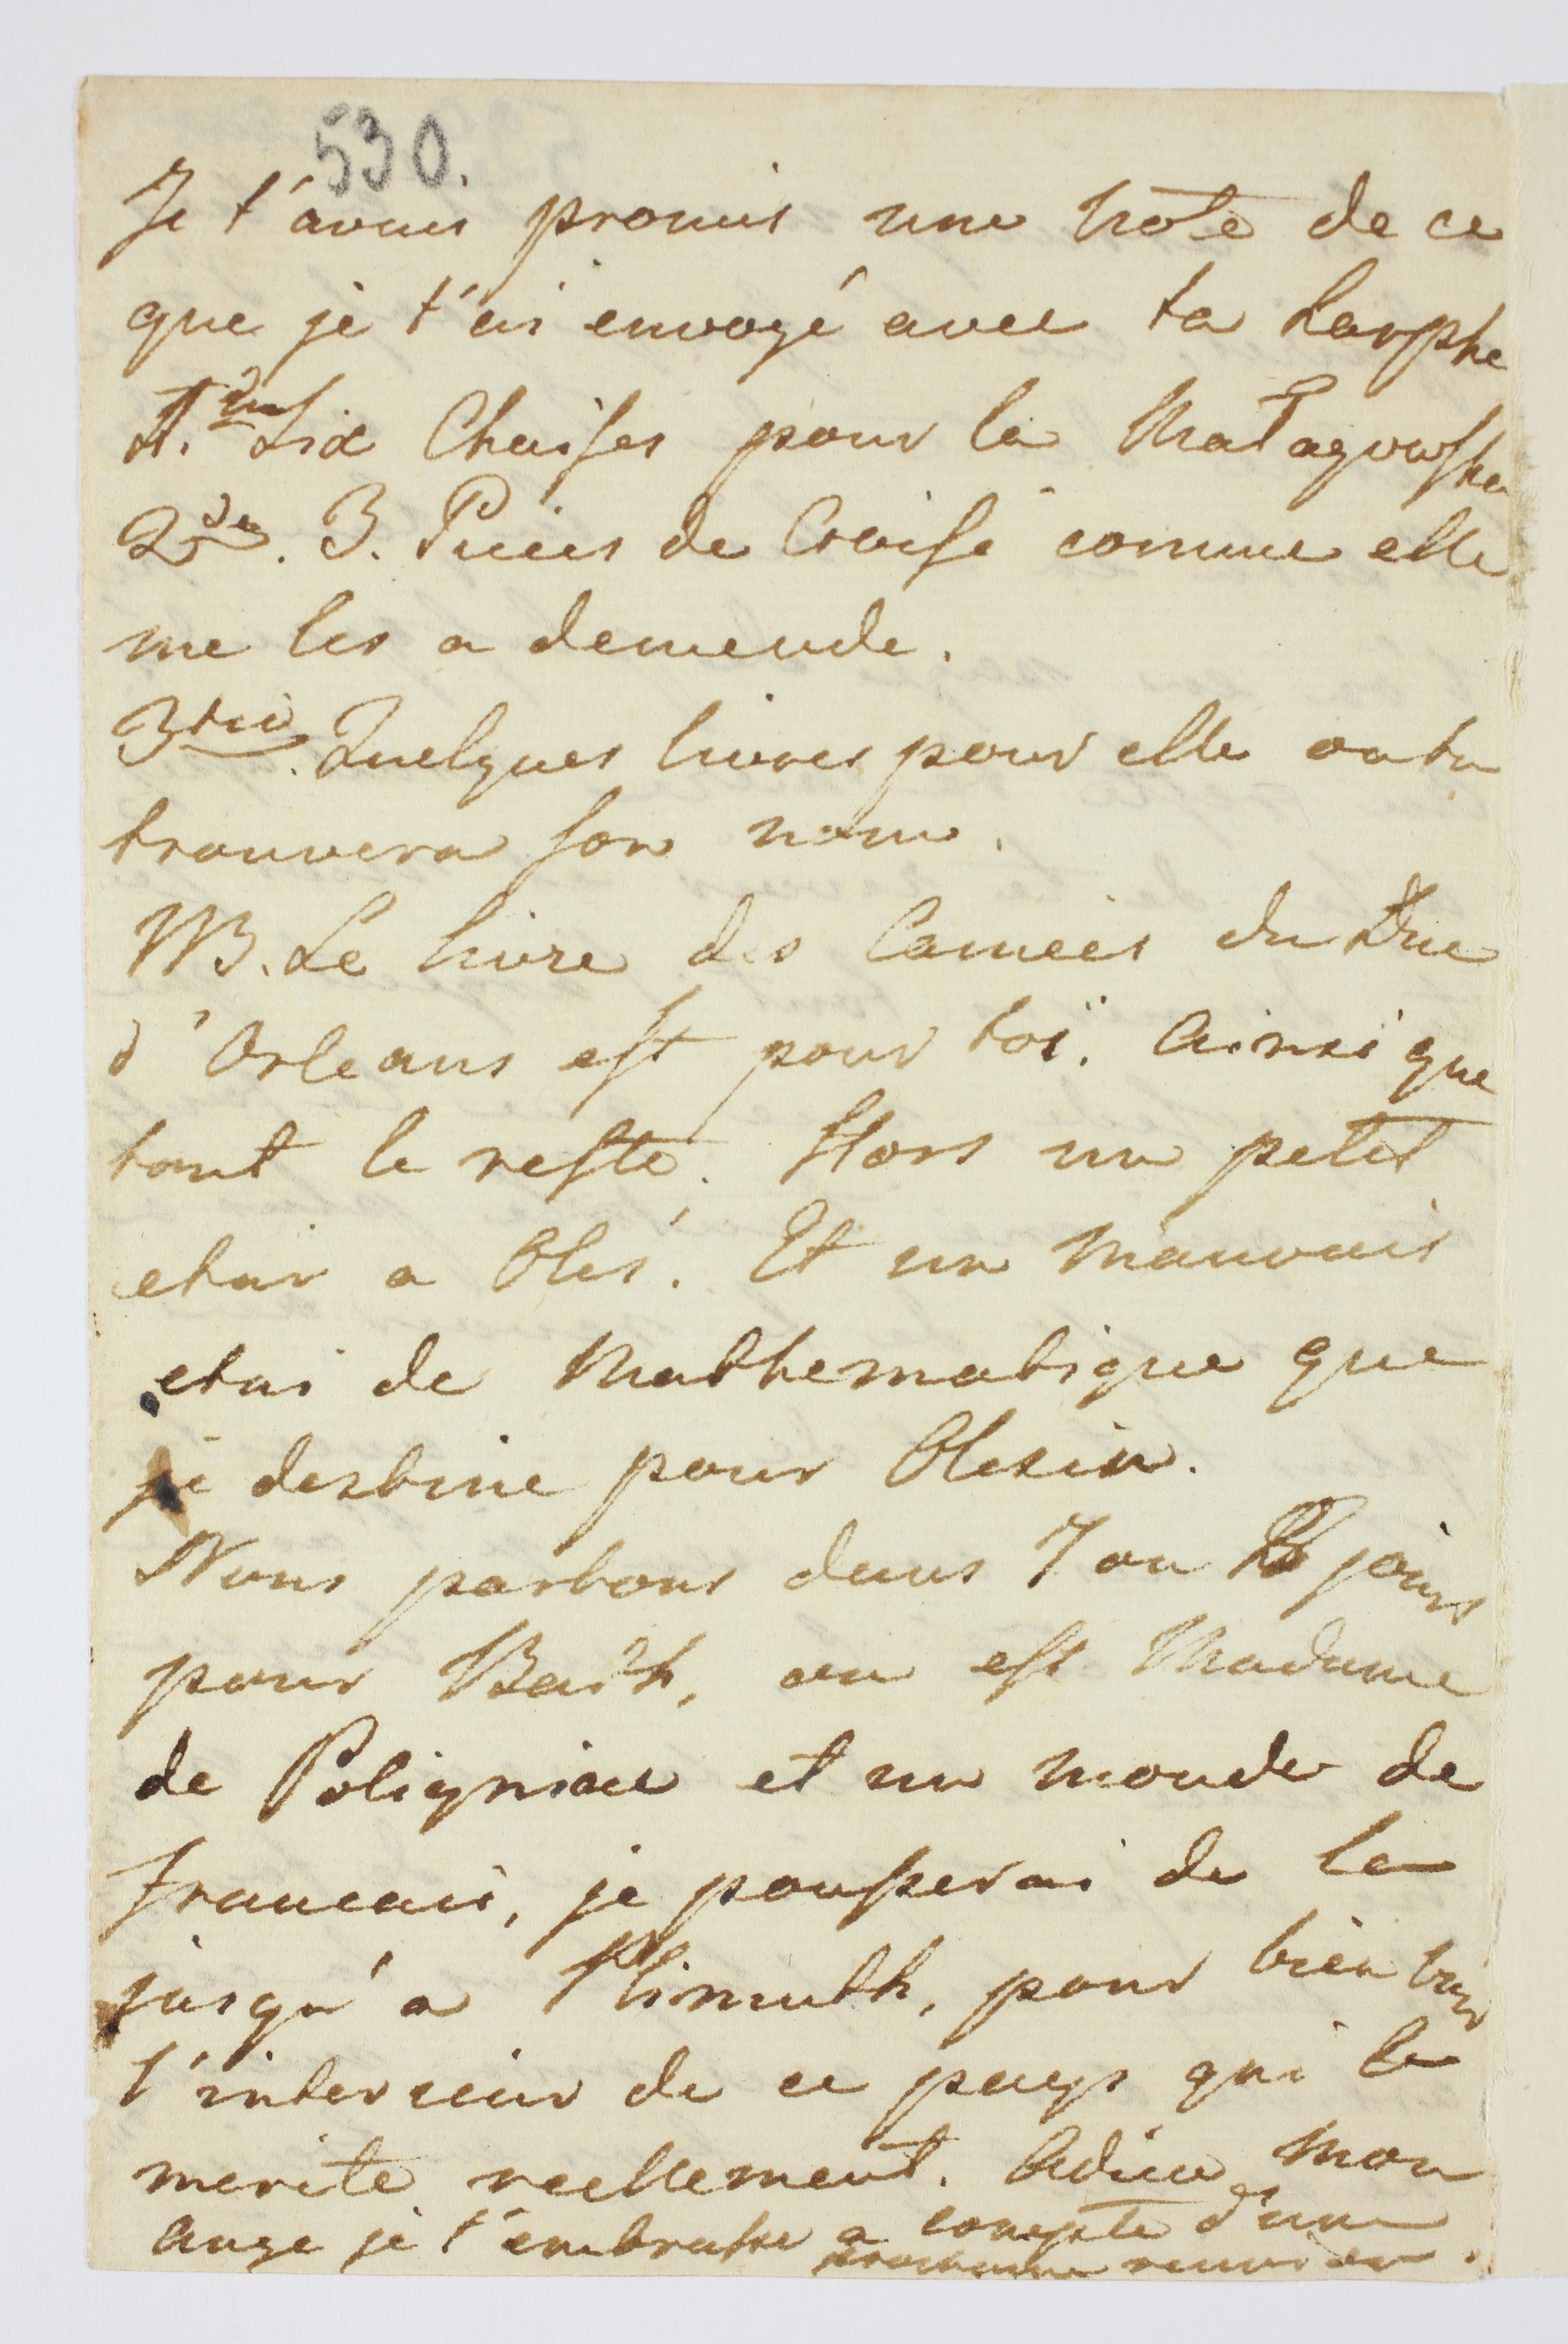 530.
Je t'avais promis une note de ce
que je t'ai envoyé avec ta harphe
Six Chaises pour la Matagowska
2do. 3. Pieces de Croisé comme elle
me les a demende.
3tio. Quelques livres pour elle ou tu
trouvera son nom.
NB. Le livre des Camées du Duc
d'Orleans est pour toï. Ainsi que
tout le reste. Hors un petit
etui a Olés. Et un mauvais
etui de Mathematique que
je destine pour Olesin.
Nous partons dans 7 ou 8 jours
pour Bath, ou est Madame
de Poligniac et un monde de
francais, je pousserai de la
jusqu'a Plimuth, pour bien
l'interieur de ce pays qui le
merite reellement. Adieu mon
Ange je t'embrasse a compte d'une
reunion.